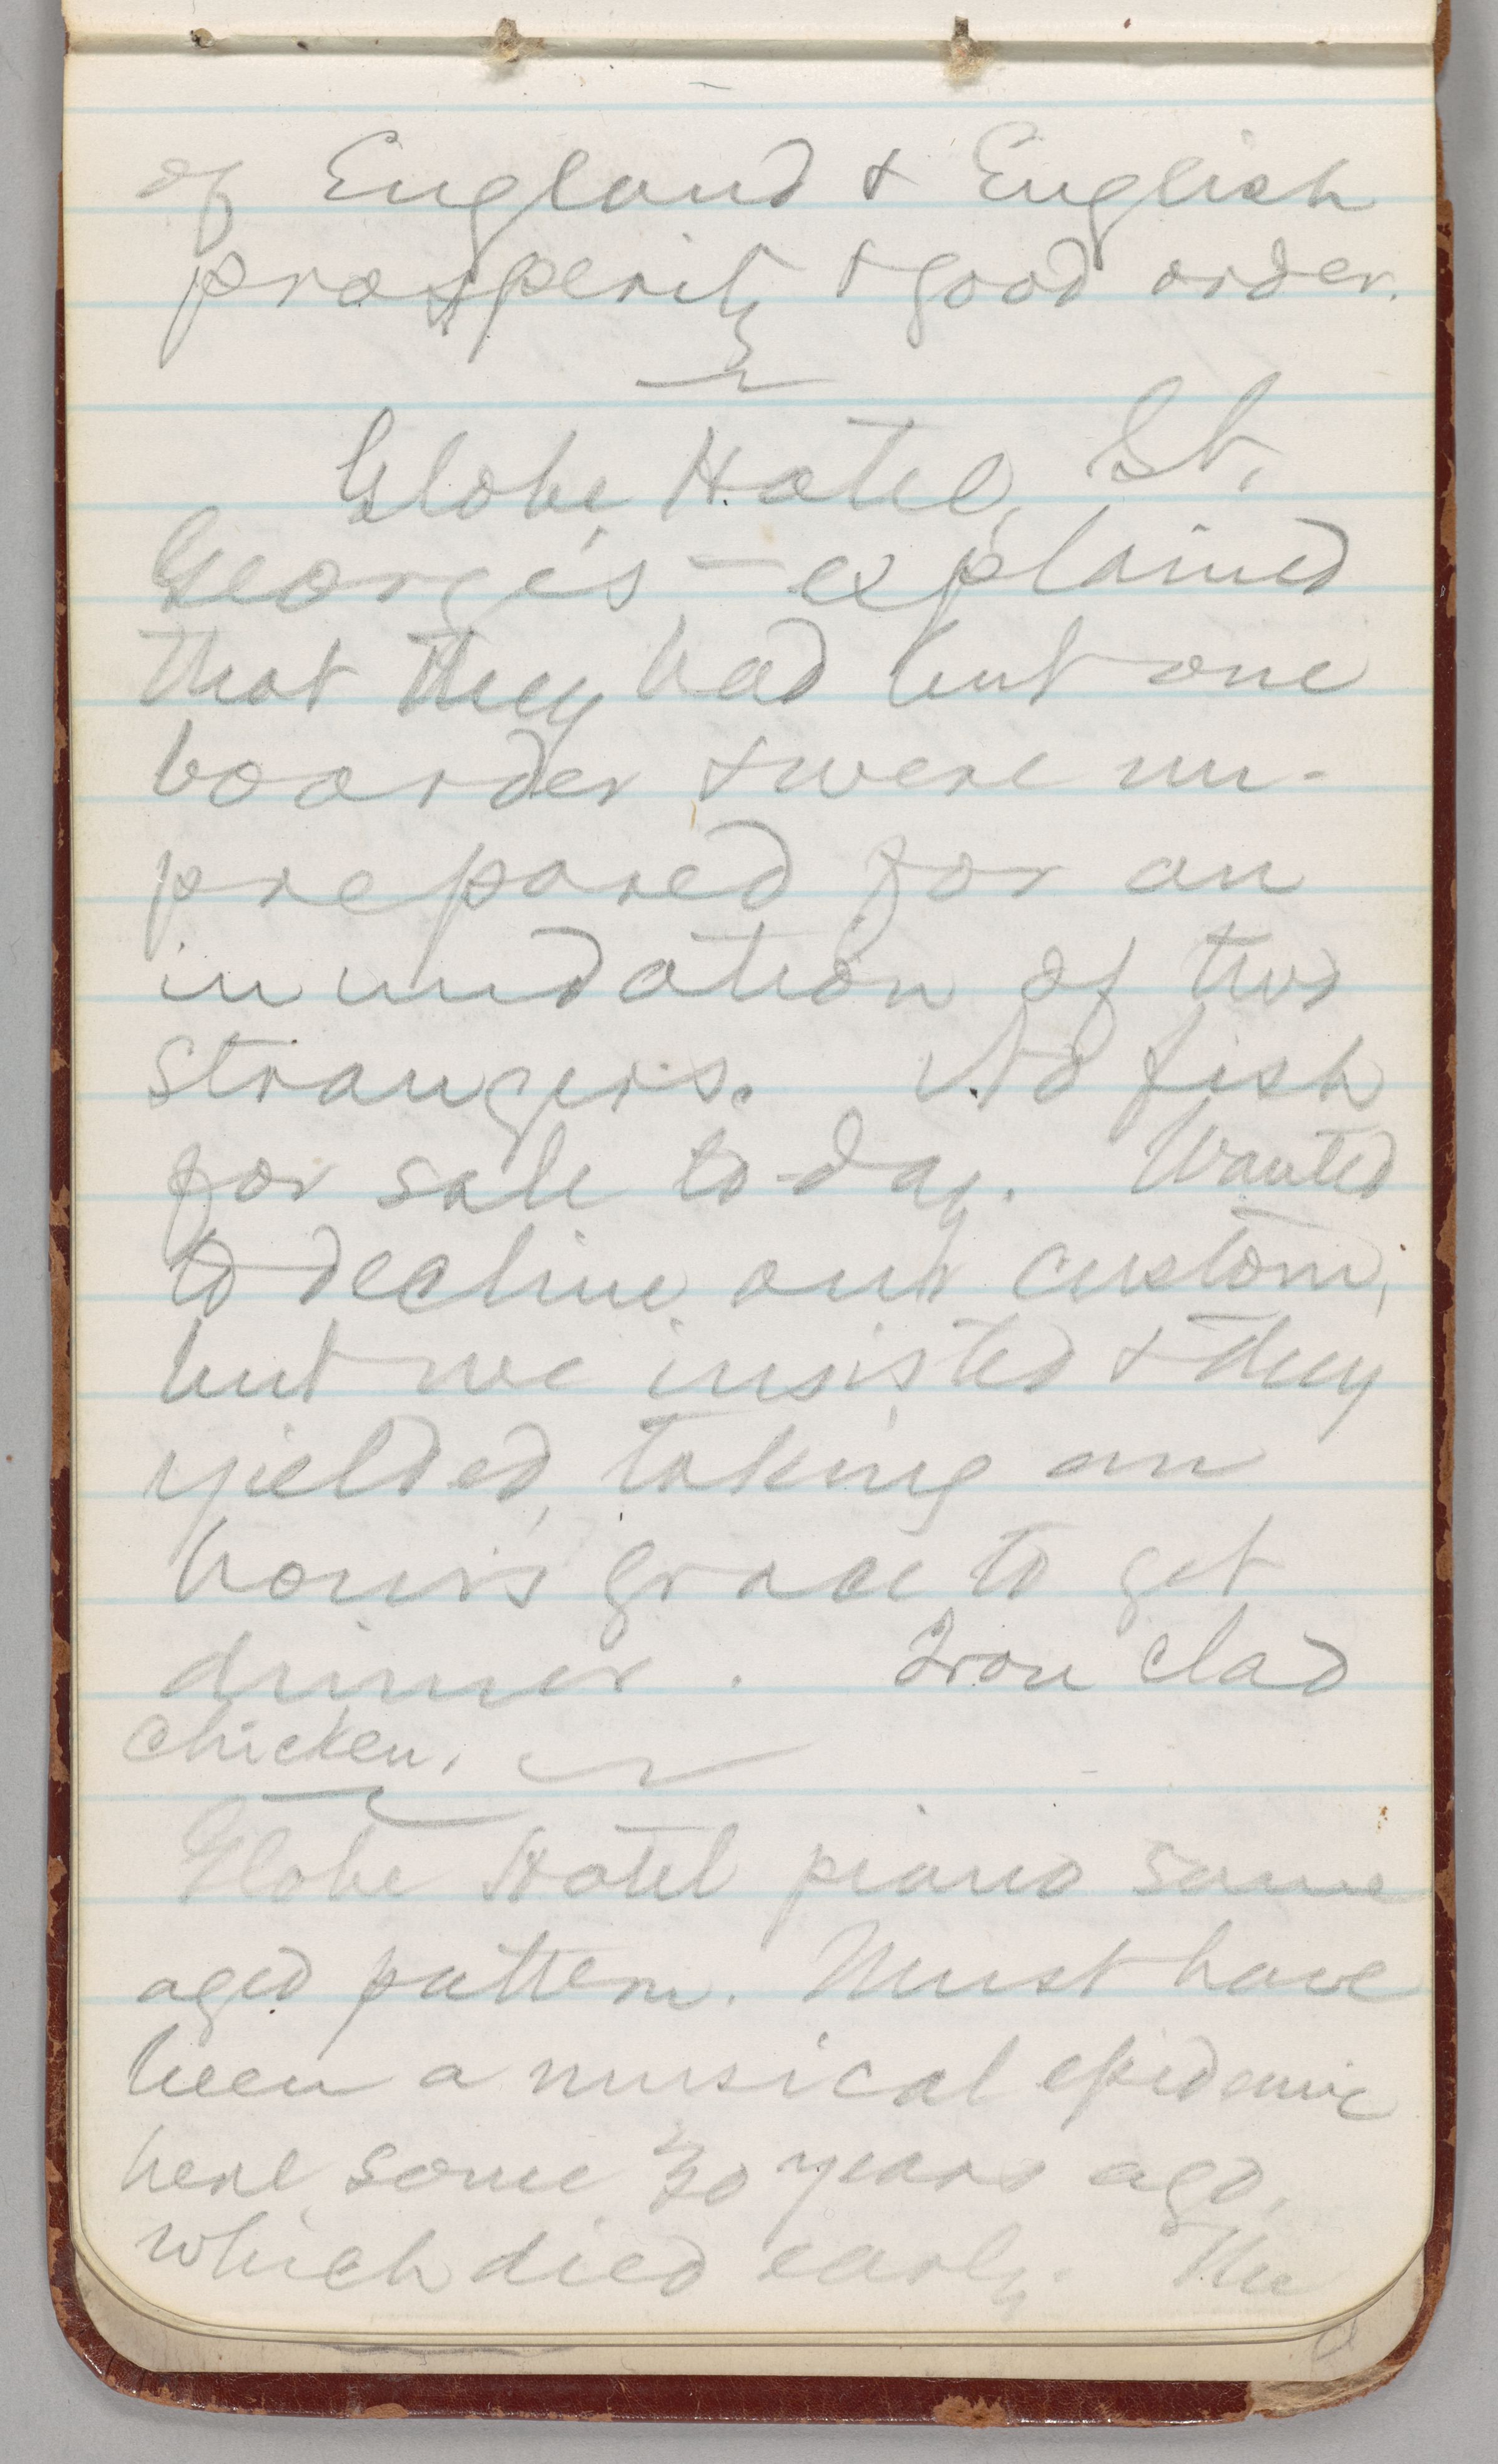 of England & English
prosperity & good order.
Globe Hotel, St.
George's — explained
that they had but one
boarder & were un-
prepared for an
inundation of two
strangers. No fish
for sale to-day. Wanted
to decline our custom,
but we insisted & they
yielded, taking an
hour's grace to get
dinner. Iron clad
chicken.
Globe Hotel piano same
aged pattern. Must have
been a musical epidemic
here some 30 years ago,
which died early. The